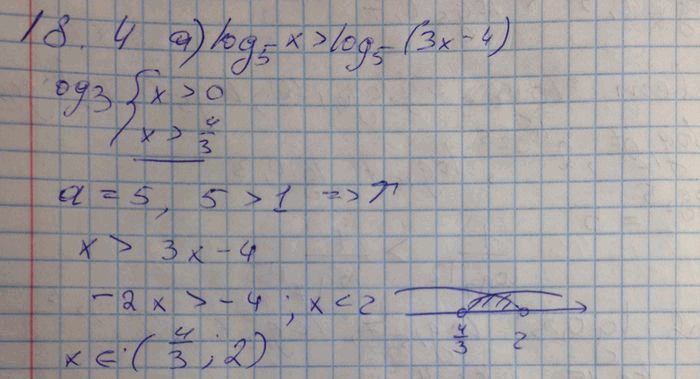 18.4 а) log₅ x > log₅ (3x - 4)
ОДЗ { x > 0
x > 4/3
a = 5, 5 > 1 => ↑
x > 3x - 4
-2x > -4 ; x < 2
x ∈ (4/3 ; 2)
4/3 2